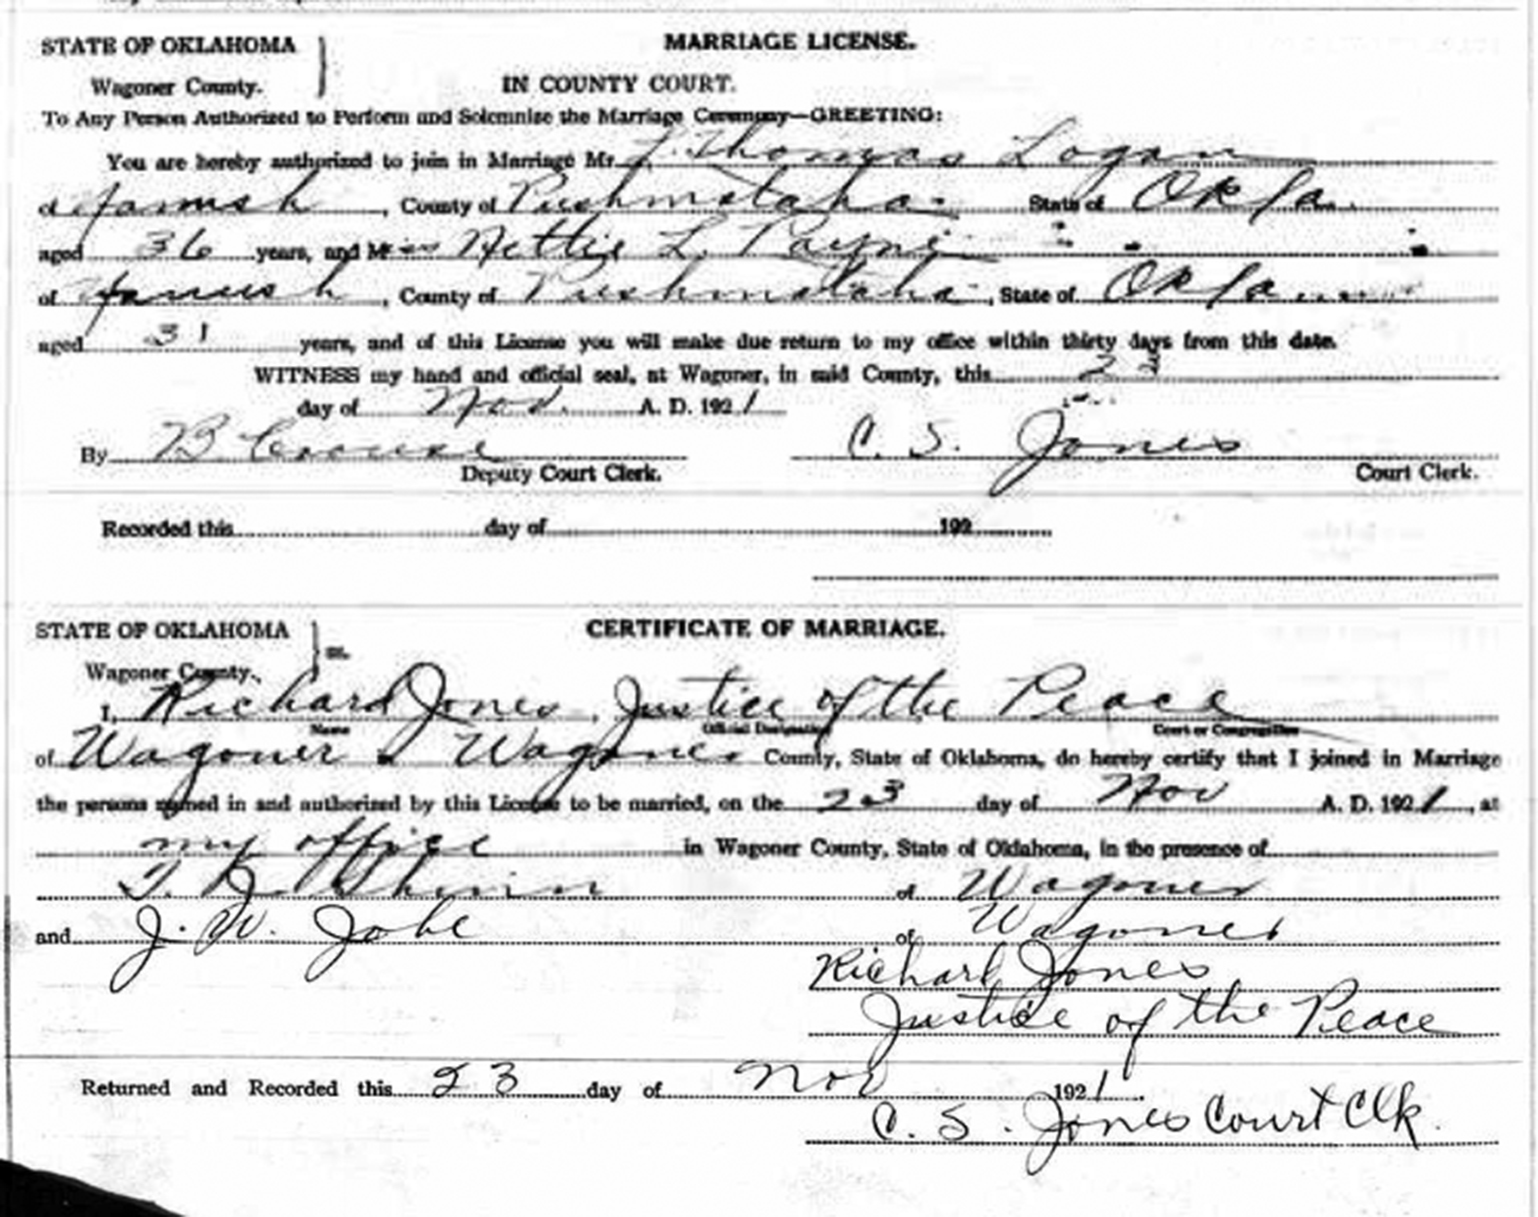 STATE OF OKLAHOMA
Wagoner County.
MARRIAGE LICENSE.
IN COUNTY COURT.
To Any Person Authorized to Perform and Solemnize the Marriage Ceremony—GREETING:
You are hereby authorized to join in Marriage Mr. Thomas Logan
of, County of Pushmataha State of Okla.
aged 36 years, and Miss Nettie L. Payne
of, County of Pushmataha, State of Okla
aged 31 years, and of this License you will make due return to my office within thirty days from this date.
WITNESS my hand and official seal, at Wagoner, in said County, this 23
day of Nov. A. D. 1921
By B Crouse C. S. Jones
Deputy Court Clerk. Court Clerk.
Recorded this day of 192
STATE OF OKLAHOMA
Wagoner County., ss.
CERTIFICATE OF MARRIAGE.
I, Richard Jones, Justice of the Peace
Name Official Designation Court or Congregation
of Wagoner Wagoner County, State of Oklahoma, do hereby certify that I joined in Marriage
the persons named in and authorized by this License to be married, on the 23 day of Nov A. D. 1921, at
my office in Wagoner County, State of Oklahoma, in the presence of
T. of Wagoner
and J. W. Jobe of Wagoner
Richard Jones
Justice of the Peace
Returned and Recorded this 23 day of Nov 1921
C. S. Jones Court Clk.